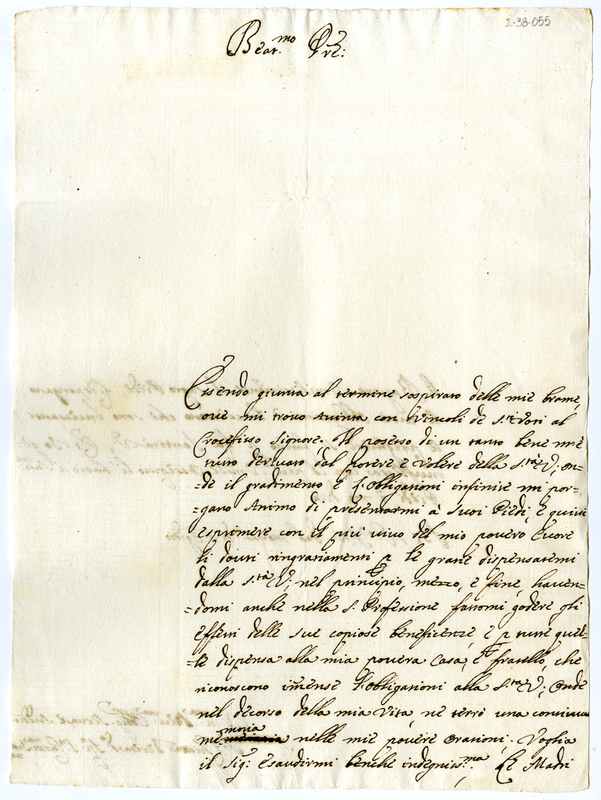 2-38-055
Beat.mo Pre:
Essendo giunta al termine sospirato delle mie brame,
ove mi trovo avinta con i vincoli de S.ti Voti al
Crocefisso Signore. Il possesso di un tanto bene mi è
tutto derivato dal potere e volere della S.tà V; on=
=de il gradimento e l'obligationi infinite mi por=
=gano Animo di presentarmi a Suoi Piedi, e quivi
esprimere con il più vivo del mio povero Cuore
li dovuti ringratiamenti p le gratie dispensatemi
dalla S.tà V; nel principio, mezzo, e fine, haven=
=domi anche nella S. Professione fattomi godere gli
effetti delle sue copiose beneficenze e p tutte quel=
=le dispensa alla mia povera Casa, e fratello, che
riconoscono imense l'obligationi alla S.tà V; Onde
nel decorso della mia Vita ne terrò una continua
memoria nelle mie povere Orationi. Voglia
il Sig: esaudirmi benche indegniss.ma Le Madri